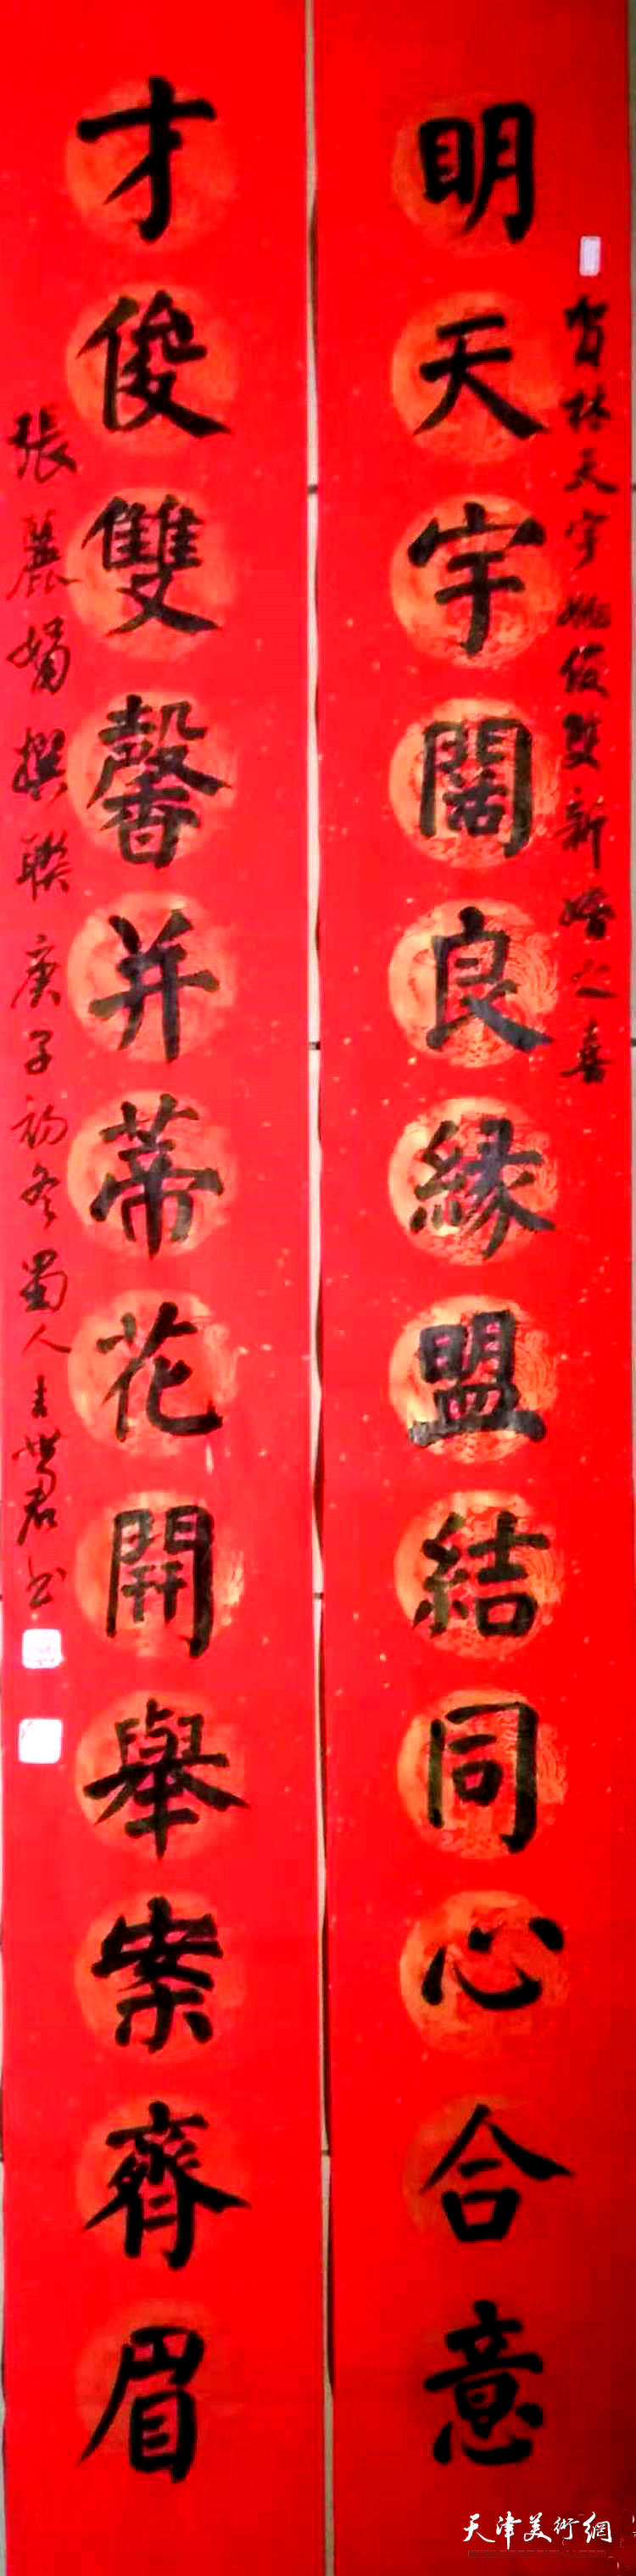 賀林天宇姚俊雙新婚之喜
明天宇闊良緣盟結同心合意
才俊雙馨并蒂花開舉案齊眉
張麗娟撰聯庚子初冬蜀人書君书
天津美術網